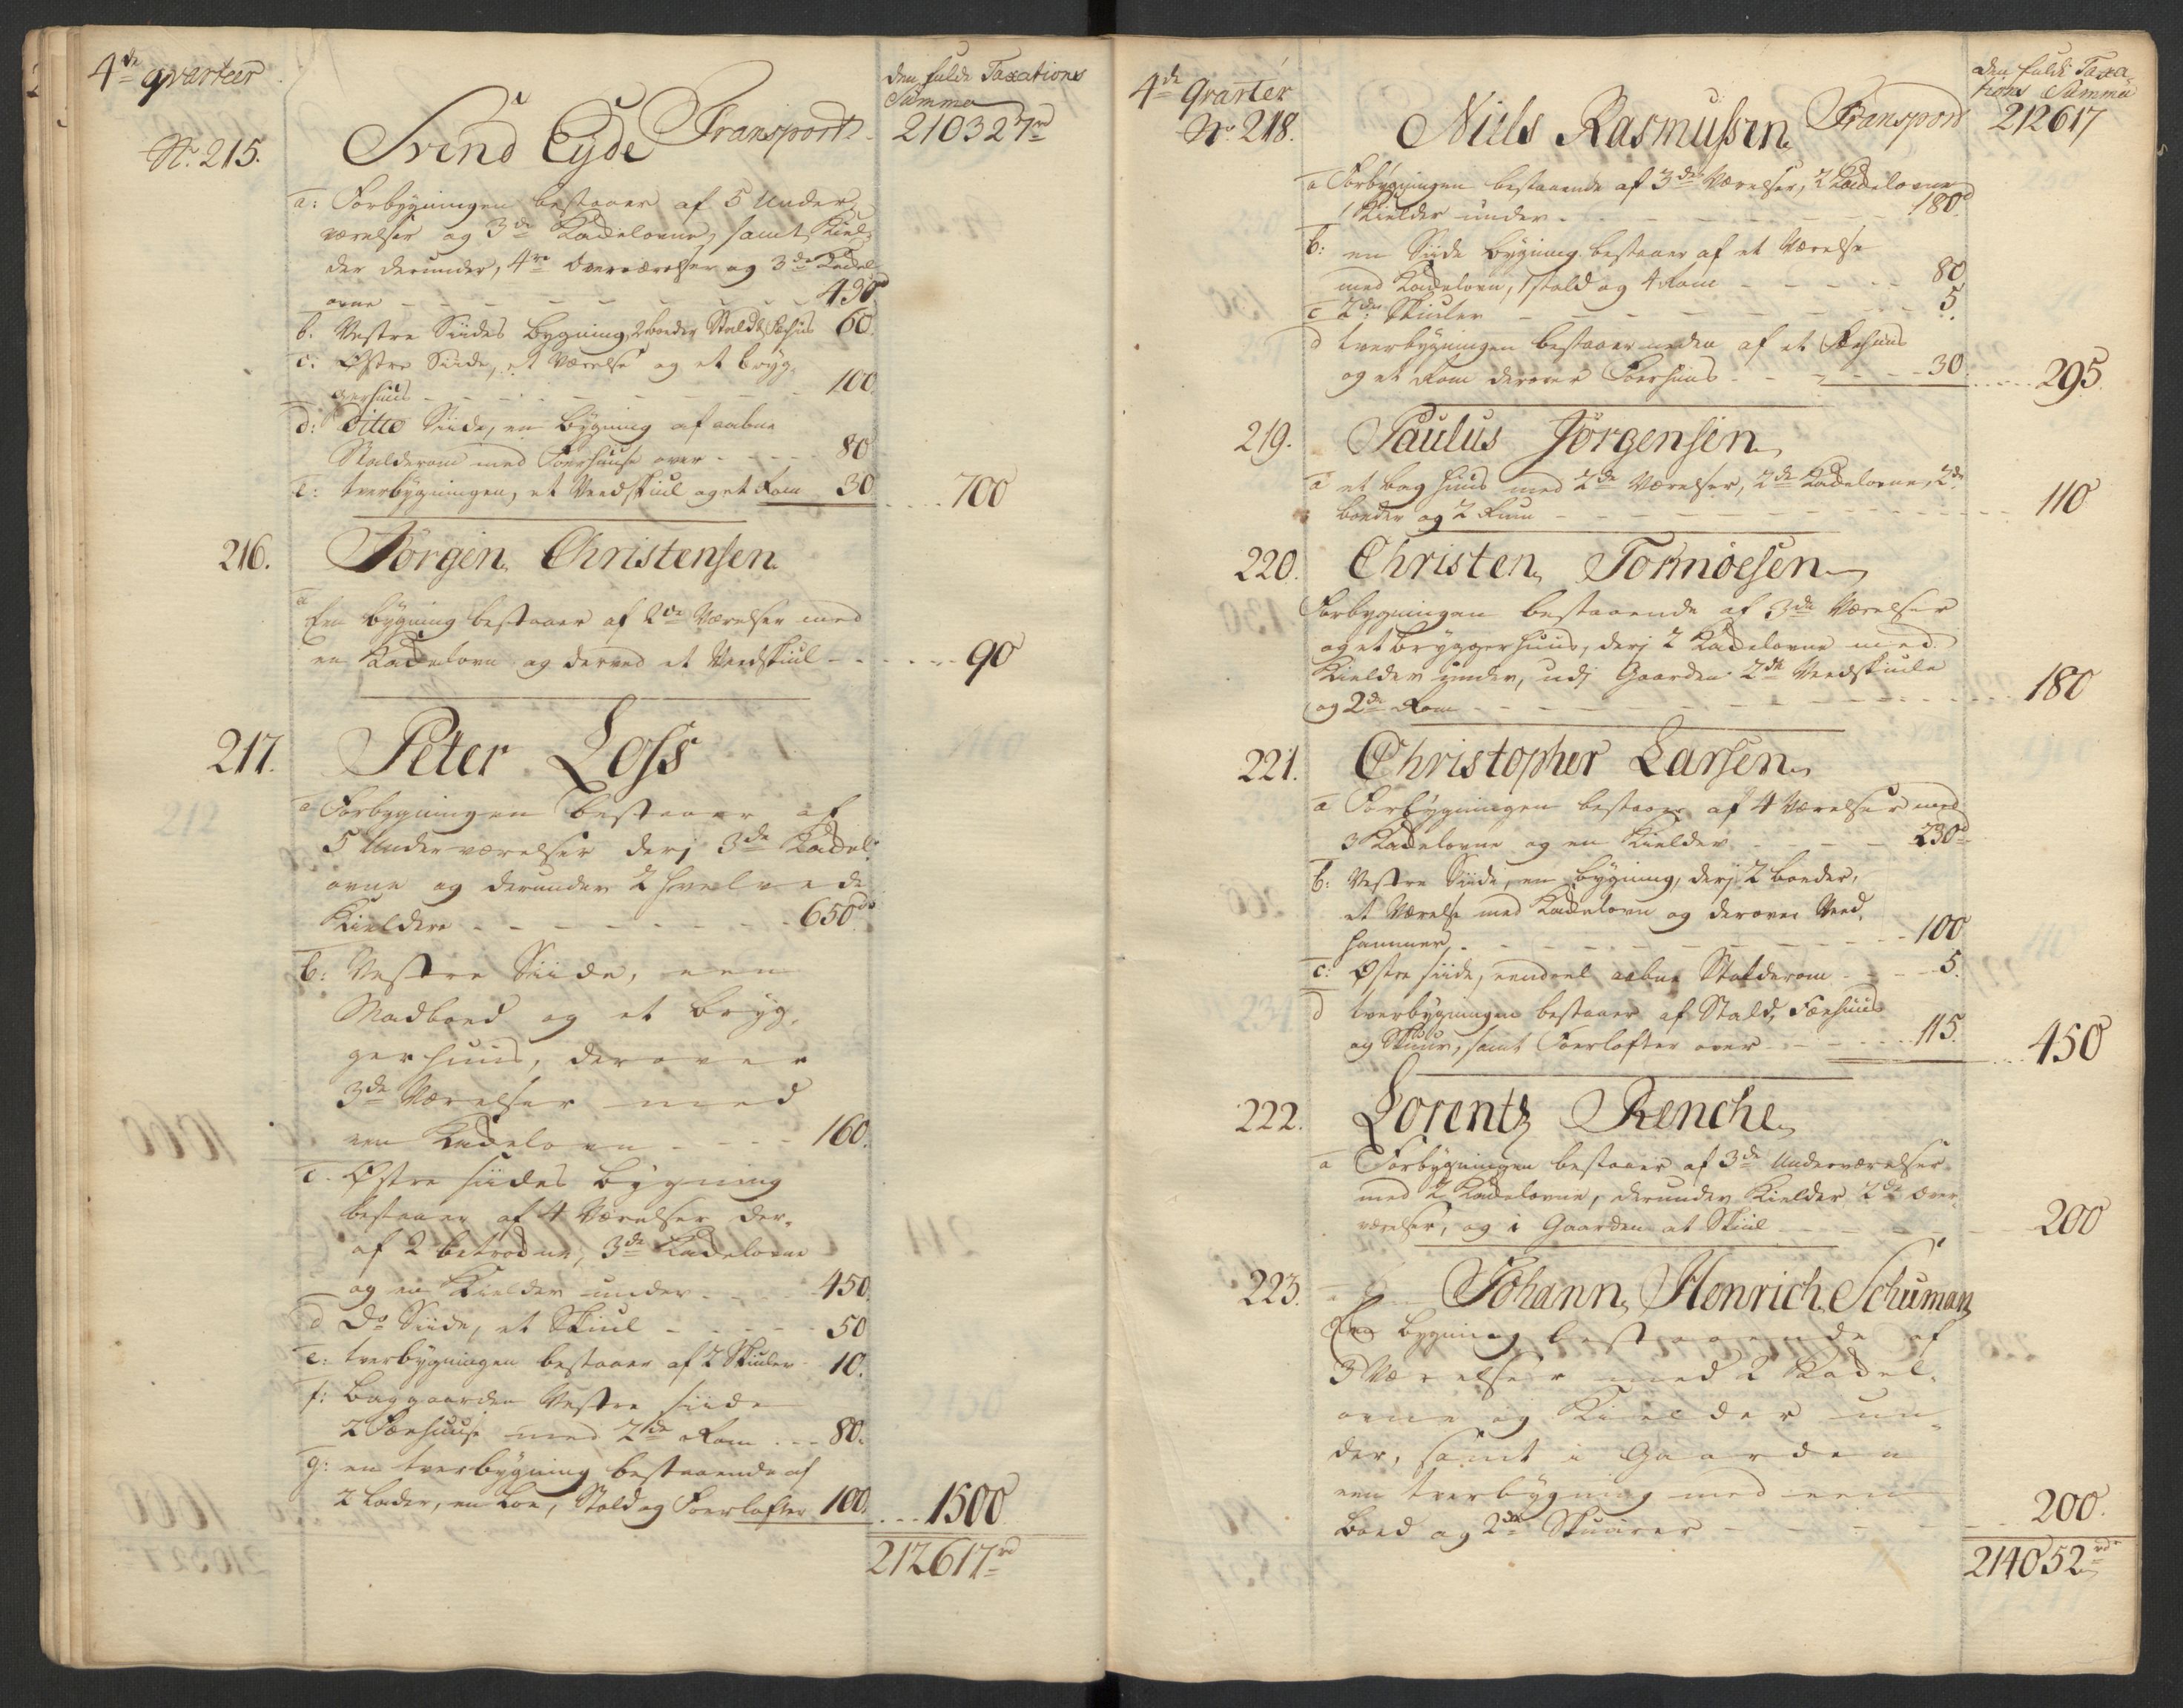 4de qvarteer
den fulde Taxations
Summa
Transport 210327rd
No. 215. Svend Eyde
a: Forbygningen bestaaer af 5 Under
værelser og 3de Kackelovne, samt Kiel-
der derunder, 4re Overværelser og 3de Kackel
ovne - - - 430d
b. Vestre Siides Bygning, 2 boeder Stald & Fæhuus 60.
c. Østre Siide, et Værelse og et bryg-
gerhuus - - - 100.
d: ditto Siide, en Bygning af aabne
Stalderom med Foerhuuse over - - - 80
e: tverbygningen, et Veedskiul og et Rom 30 . . . 700
216. Jörgen Christensen
a En bygning bestaaer af 2de Værelser med
en Kackelovn og derved et Veedskiul - - - 90
217. Peter Loss
a Forbygningen bestaaer af
5 Underværelser derj 3de Kackel-
ovne og derunder 2 hvelvede
Kieldere - - - 650d
b: Vestre Siide, een
Madboed og et bryg-
gerhuus, derover
3de Værelser med
een Kackelovn - - - 160.
c. Østre siides bygning
bestaaer af 4 Værelser der-
af 2 betrockne, 3de Kackelovne
og en Kielder under - - - 450.
d Do Siide, et Skiul - - - 50
e: tverbygningen bestaaer af 2 Skiuler 10.
f: Baggaarden Vestre siide
2 Fæehuuse med 2de Rom - - - 80.
g: en tverbygning bestaaende af
2 Lader, en Loe, Stald og Foerlofter 100. . . . 1500
212617rd
4de Qvarter
den fulde Taxa-
tions Summa
Transport 212617
No. 218. Niels Rasmussen
a Forbygningen bestaaende af 3de Værelser, 2 Kackelovne
1 Kielder under - - - 180d
b: en Siide bygning bestaaer af et Værelse
med Kackelovn, 1 stald og 4 Rom - - - 80
c 2de Skiuler - - - 5.
d tverbygningen bestaaer neden af et Fæehuus
og et Rom derover Foerhuus - - - 30 . . . 295.
219. Paulus Jörgensen
a et bag huus med 2de Værelser, 2de Kackelovne, 2de
boeder og 2 Rum - - - 110
220. Christen Tormöesen
Forbygningen bestaaende af 3de Værelser
og et bryggerhuus, derj 2 Kackelovne med
Kielder under, udj Gaarden 2de Veedskiule
og 2de Rom - - - 180
221. Christopher Larsen
a Forbygningen bestaaer af 4 Værelser med
3 Kackelovne og en Kielder - - - 230d
b: Vestre Siide, en bygning, derj 2 boeder,
et Værelse med Kackelovn og derover Veed-
hammer, - - - 100
c: Østre siide, eendeel aabne Stalderom - - - 5.
d tverbygningen bestaaer af Stald, Fæehuus
og Skuur, samt Foerlofter over - - - 115. . . . 450
222. Lorentz Renche
a Forbygningen bestaaer af 3de Underværelser
med 2 Kackelovne, derunder Kielder 2de Over-
værelser, og i Gaarden et Skiul - - - 200
223. Johann Henrich Schuman
Een bygning bestaaende af
3 Værelser med 2 Kackel-
ovne og Kielder un-
der, samt i Gaarden
een tverbygning med een
Boed og 2de Skuurer - - - 200.
214052rd